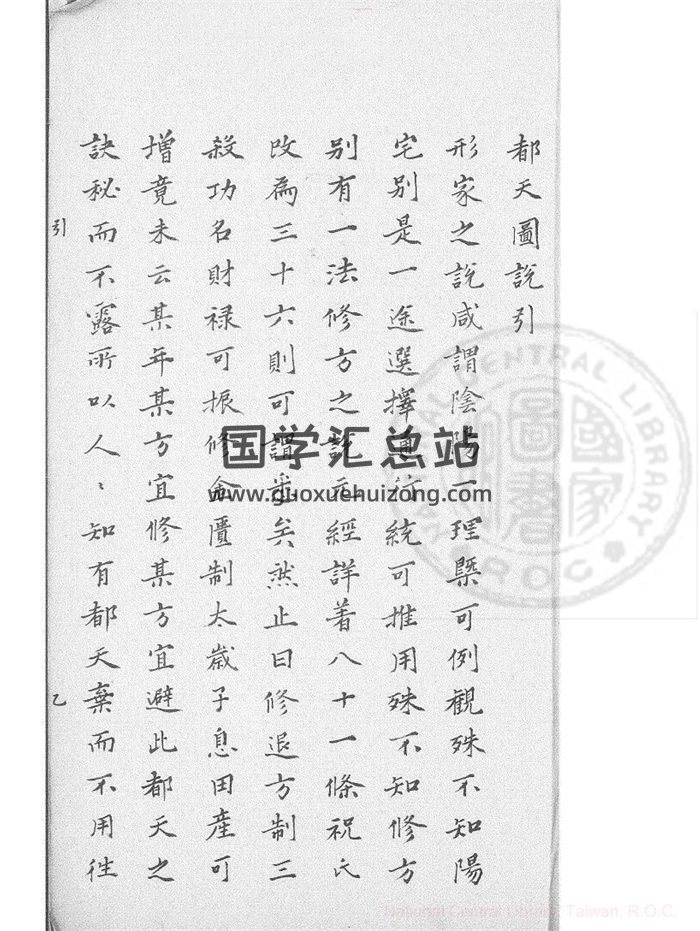 都天圖說引
形家之說咸謂陰陽一理槩可例觀殊不知陽
宅別是一途選擇通統可推用殊不知修方
別有一法修方之說元經詳着八十一條祝氏
改為三十六則可謂矣然止曰修退方制三
殺功名財祿可振修金匱制太歲子息田產可
增竟未云某年某方宜修某方宜避此都天之
訣秘而不露所以人〻知有都天棄而不用往
引
乙
国学汇总站
www.guoxuehuizong.com
NATIONAL CENTRAL LIBRARY
R.O.C.
國家圖書
National Central Library, Taiwan, R.O.C.